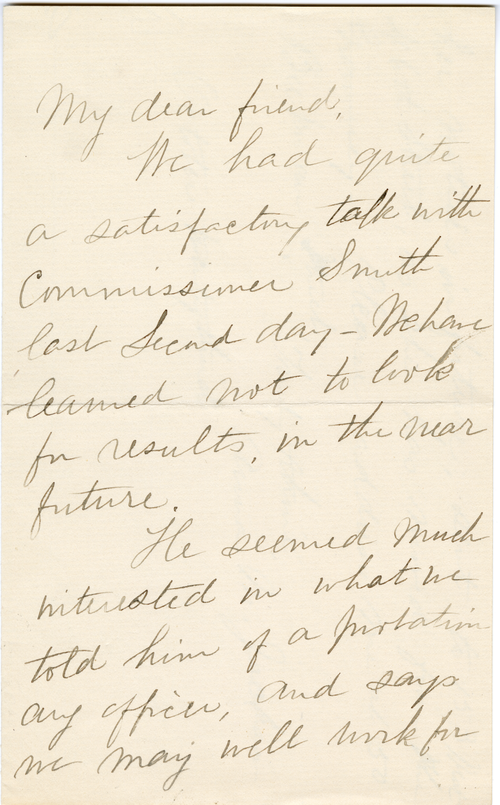 My dear friend,
We had quite
a satisfactory talk with
Commissioner Smith
last Second day – We have
learned not to look
for results, in the near
future.
He seemed much
interested in what we
told him of a probation
ary officer, and says
we may well work for